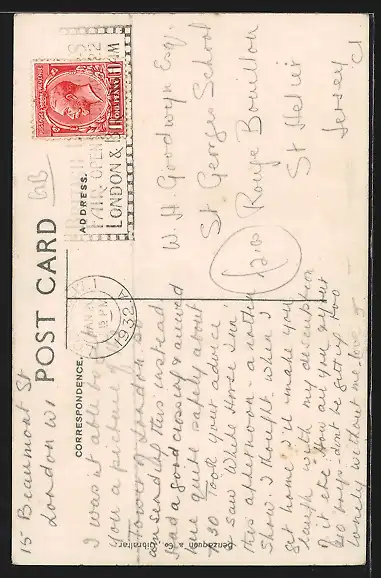 15 Beaumont St
London W1
POST CARD
CORRESPONDENCE.
ADDRESS.
I wasn't able to
you a picture of
Tower of London so
am sending this instead
Had a good crossing & arrived
here quite safely about
7.30 Took your advice &
saw "White Horse Inn"
this afternoon a rotten
show. I thought. when I
get home I'll make you
laugh with my description
of it etc. How are you & your
200 boys - don't be getting too
lonely without me. love
W. H. Goodwyn Esq.
St Georges School
Rouge Bouillon
St Helier
Jersey
C I
1932
LONDON &
FAIR OPEN
ONE PENNY
Benzaquen & Co, Gibraltar